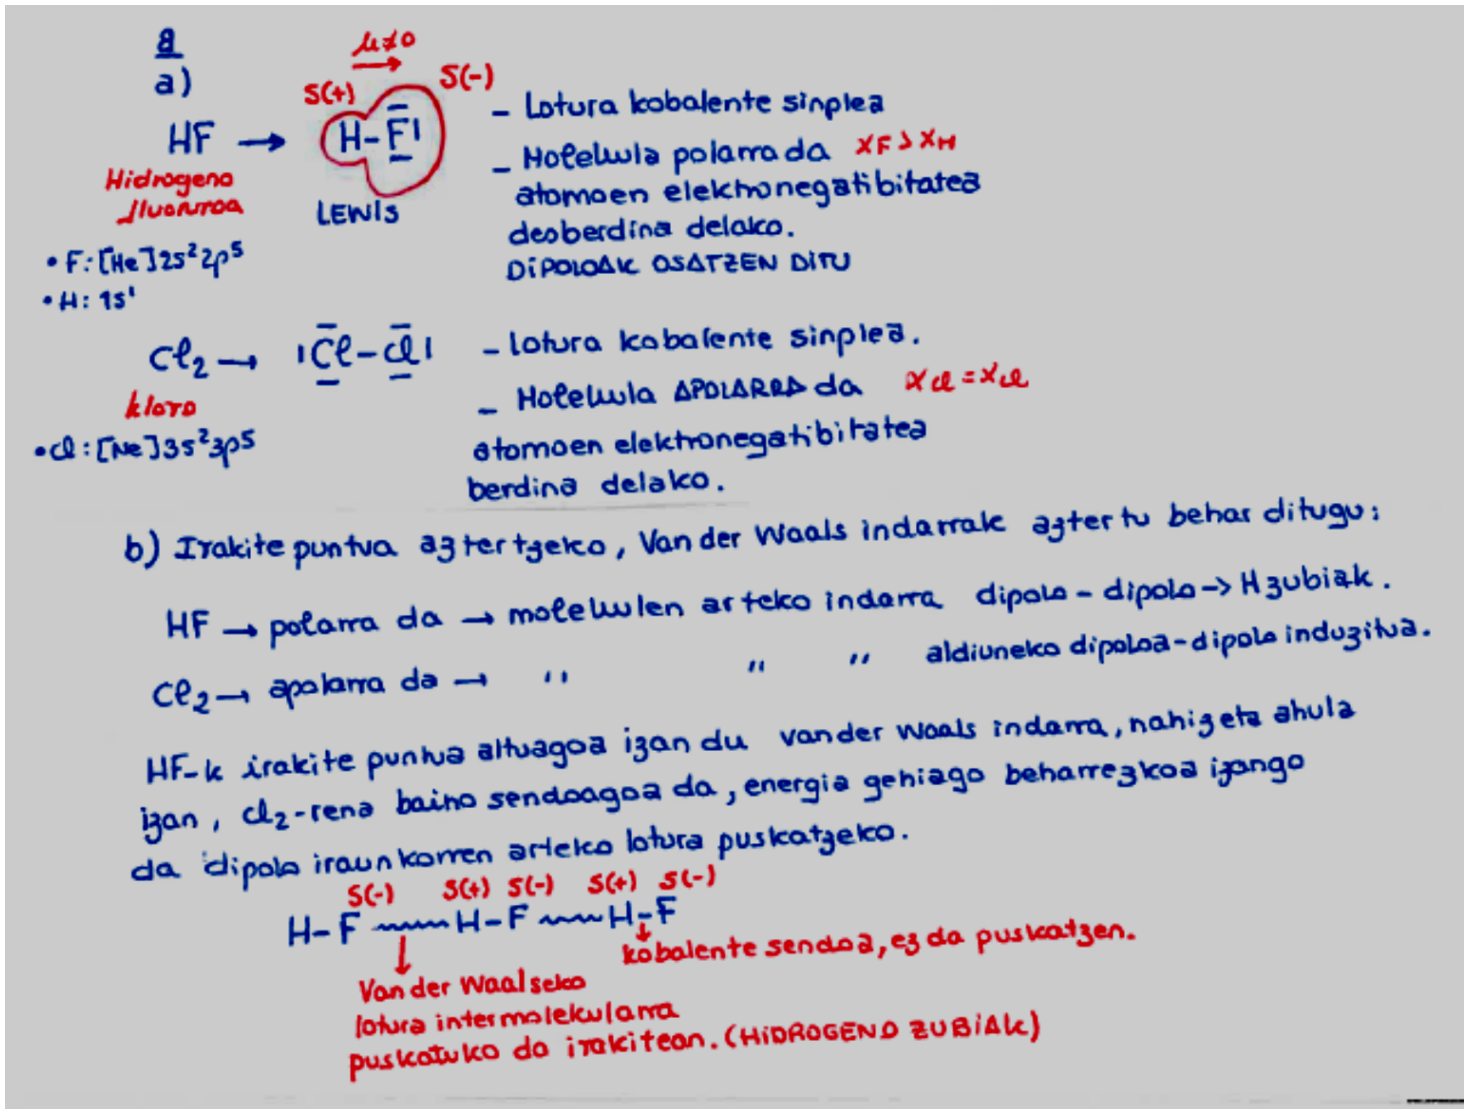 8
a)
μ≠0
δ(+) δ(-)
HF → H-F
Hidrogeno
fluoruroa
LEWIS
• F: [He]2s²2p⁵
• H: 1s¹
- Lotura kobalente sinplea
- Molekula polarra da χF > χH
atomoen elektronegatibitatea
desberdina delako.
DIPOLOAK OSATZEN DITU
Cl₂ → Cl-Cl
kloro
• Cl: [Ne]3s²3p5
- lotura kobalente sinplea.
- Molekula APOLARRA da χCl = χCl
atomoen elektronegatibitatea
berdina delako.
b) Irakite puntua aztertzeko, Van der Waals indarrak aztertu behar ditugu:
HF → polarra da → molekulen arteko indarra dipolo-dipolo → H zubiak.
Cl₂ → apolarra da → " " " aldiuneko dipoloa-dipolo induzitua.
HF-k irakite puntua altuagoa izan du vander Waals indarra, nahiz eta ahula
izan, Cl₂-rena baino sendoagoa da, energia gehiago beharrezkoa izango
da dipolo iraunkorren arteko lotura puskatzeko.
δ(-) δ(+) δ(-) δ(+) δ(-)
H-F H-F H-F
kobalente sendoa, ez da puskatzen.
Van der Waalseko
lotura intermolekularra
puskatuko da irakitean. (HIDROGENO ZUBIAK)